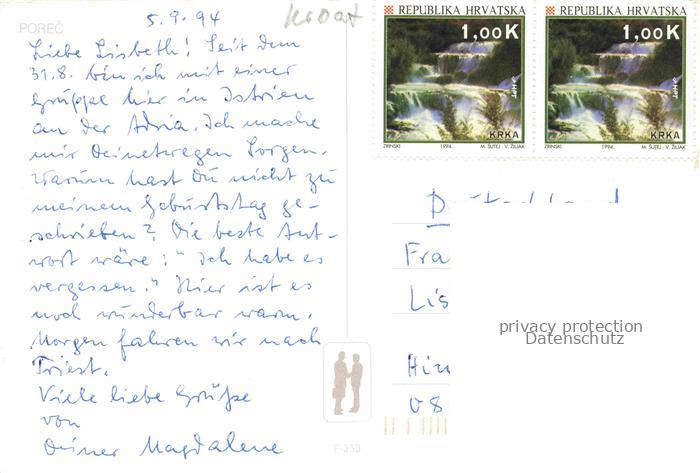 5.9.94
kroat
POREČ
Liebe Lisbeth! Seit dem
31.8. bin ich mit einer
Gruppe hier in Istrien
an der Adria. Ich mache
mir Deinetwegen Sorgen.
Warum hast Du nicht zu
meinem Geburtstag ge-
schrieben? Die beste Ant-
wort wäre: "Ich habe es
vergessen." Hier ist es
noch wunderbar warm.
Morgen fahren wir nach
Triest.
Viele liebe Grüße
von
Deiner Magdalene
F-353
REPUBLIKA HRVATSKA
1,00 K
HPT
KRKA
ZRINSKI 1994. M. ŠUTEJ - V. ŽILJAK
REPUBLIKA HRVATSKA
1,00 K
HPT
KRKA
ZRINSKI 1994. M. ŠUTEJ - V. ŽILJAK
Fra
Lis
privacy protection
Datenschutz
08